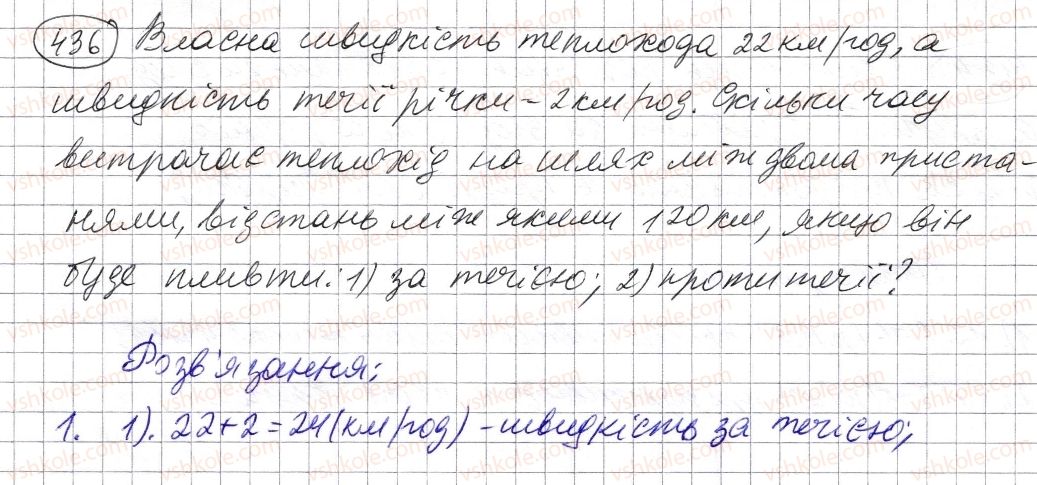 436 Власна швидкість теплохода 22 км/год, а
швидкість течії річки - 2 км/год. Скільки часу
витрачає теплохід на шлях між двома приста-
нями, відстань між якими 120 км, якщо він
буде пливти: 1) за течією; 2) проти течії?
Розв'язання:
1. 1). 22+2=24 (км/год) - швидкість за течією;